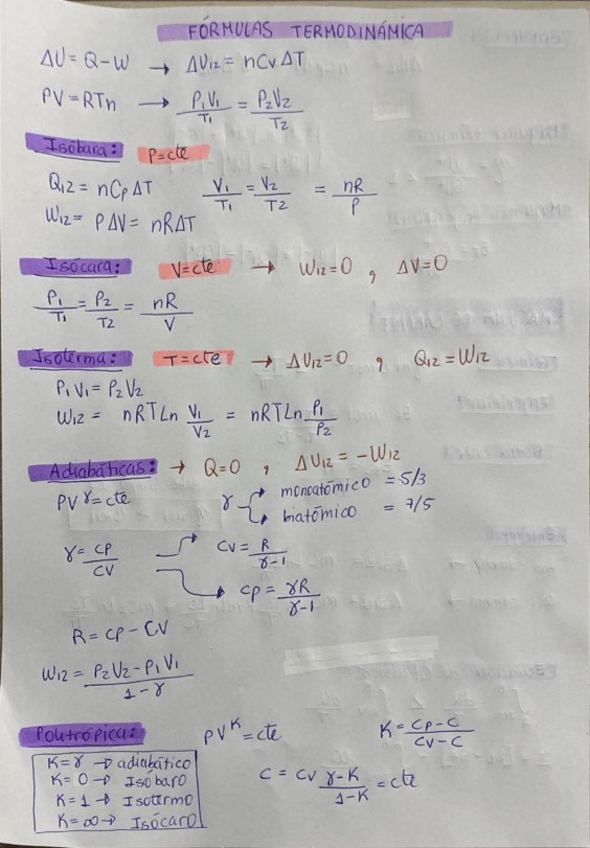 FÓRMULAS TERMODINÁMICA
ΔU = Q-W → ΔU12 = nCv ΔT
PV = RTn → P1V1/T1 = P2V2/T2
Isóbara: P=cte
Q12 = nCp ΔT V1/T1 = V2/T2 = nR/P
W12 = PΔV = nRΔT
Isócara: V=cte → W12=0 , ΔV=0
P1/T1 = P2/T2 = nR/V
Isoterma: T=cte → ΔU12=0 , Q12=W12
P1V1 = P2V2
W12 = nRT Ln V1/V2 = nRT Ln P1/P2
Adiabáticas: → Q=0 , ΔU12 = -W12
PV^γ = cte γ → monoatómico = 5/3
→ biatómico = 7/5
γ = CP/CV → CV = R/γ-1
→ CP = γR/γ-1
R = CP - CV
W12 = P2V2 - P1V1/1-γ
Politrópica: PV^K = cte K = CP-C/CV-C
K=γ → adiabático
K=0 → Isóbaro
K=1 → Isotermo
K=∞ → Isócaro
C = CV γ-K/1-K = cte